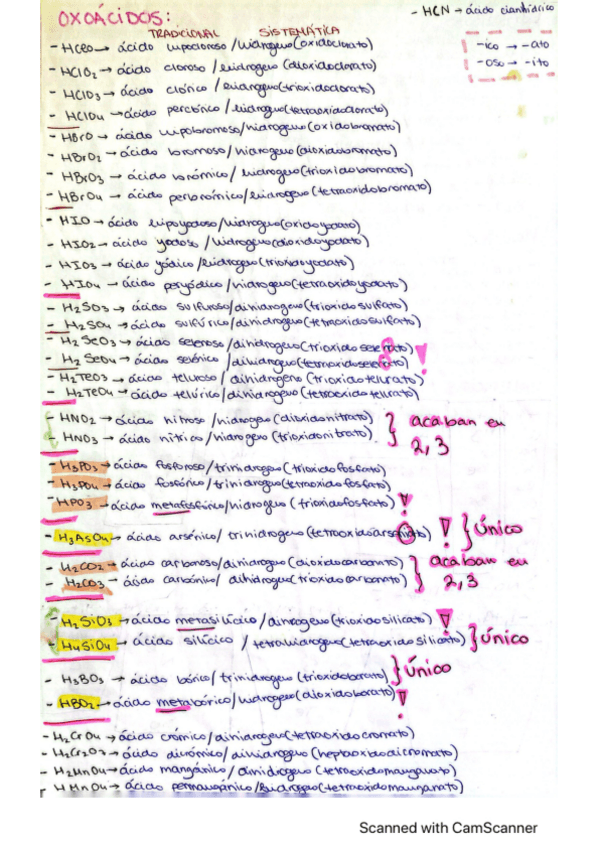 OXOÁCIDOS:
- HCN → ácido cianhídrico
TRADICIONAL SISTEMÁTICA
-ico → -ato
-oso → -ito
- HClO → ácido hipocloroso / hidrogeno (oxidoclorato)
- HClO2 → ácido cloroso / hidrogeno (dioxidoclorato)
- HClO3 → ácido clórico / hidrogeno (trioxidoclorato)
- HClO4 → ácido perclórico / hidrogeno (tetraoxidoclorato)
- HBrO → ácido hipobromoso / hidrogeno (oxidobromato)
- HBrO2 → ácido bromoso / hidrogeno (dioxidobromato)
- HBrO3 → ácido brómico / hidrogeno (trioxidobromato)
- HBrO4 → ácido perbrómico / hidrogeno (tetraoxidobromato)
- HIO → ácido hipoyodoso / hidrogeno (oxidoyodato)
- HIO2 → ácido yodoso / hidrogeno (dioxidoyodato)
- HIO3 → ácido yódico / hidrogeno (trioxidoyodato)
- HIO4 → ácido peryódico / hidrogeno (tetraoxidoyodato)
- H2SO3 → ácido sulfuroso / dihidrogeno (trioxidosulfato)
- H2SO4 → ácido sulfúrico / dihidrogeno (tetraoxidosulfato)
- H2SeO3 → ácido selenoso / dihidrogeno (trioxidoselenato)
- H2SeO4 → ácido selénico / dihidrogeno (tetraoxidoselenato) !
- H2TeO3 → ácido teluroso / dihidrogeno (trioxidotelurato)
- H2TeO4 → ácido telúrico / dihidrogeno (tetraoxidotelurato)
- HNO2 → ácido nitroso / hidrogeno (dioxidonitrato)
- HNO3 → ácido nítrico / hidrogeno (trioxidonitrato)
} acaban en 2,3
- H3PO3 → ácido fosforoso / trihidrogeno (trioxidofosfato)
- H3PO4 → ácido fosfórico / trihidrogeno (tetraoxidofosfato)
- HPO3 → ácido metafosfórico / hidrogeno (trioxidofosfato) !
- H3AsO4 → ácido arsénico / trihidrogeno (tetraoxidoarseniato) ! } Único
- H2CO2 → ácido carbonoso / dihidrogeno (dioxidocarbonato)
- H2CO3 → ácido carbónico / dihidrogeno (trioxidocarbonato)
} acaban en 2,3
- H2SiO3 → ácido metasilícico / dihidrogeno (trioxidosilicato) !
- H4SiO4 → ácido silícico / tetrahidrogeno (tetraoxidosilicato) } único
- H3BO3 → ácido bórico / trihidrogeno (trioxidoborato) } único
- HBO2 → ácido metabórico / hidrogeno (dioxidoborato) !
- H2CrO4 → ácido crómico / dihidrogeno (tetraoxidocromato)
- H2Cr2O7 → ácido dicrómico / dihidrogeno (heptaoxidodicromato)
- H2MnO4 → ácido mangánico / dihidrogeno (tetraoxidomanganato)
- HMnO4 → ácido permangánico / hidrogeno (tetraoxidomanganato)
Scanned with CamScanner